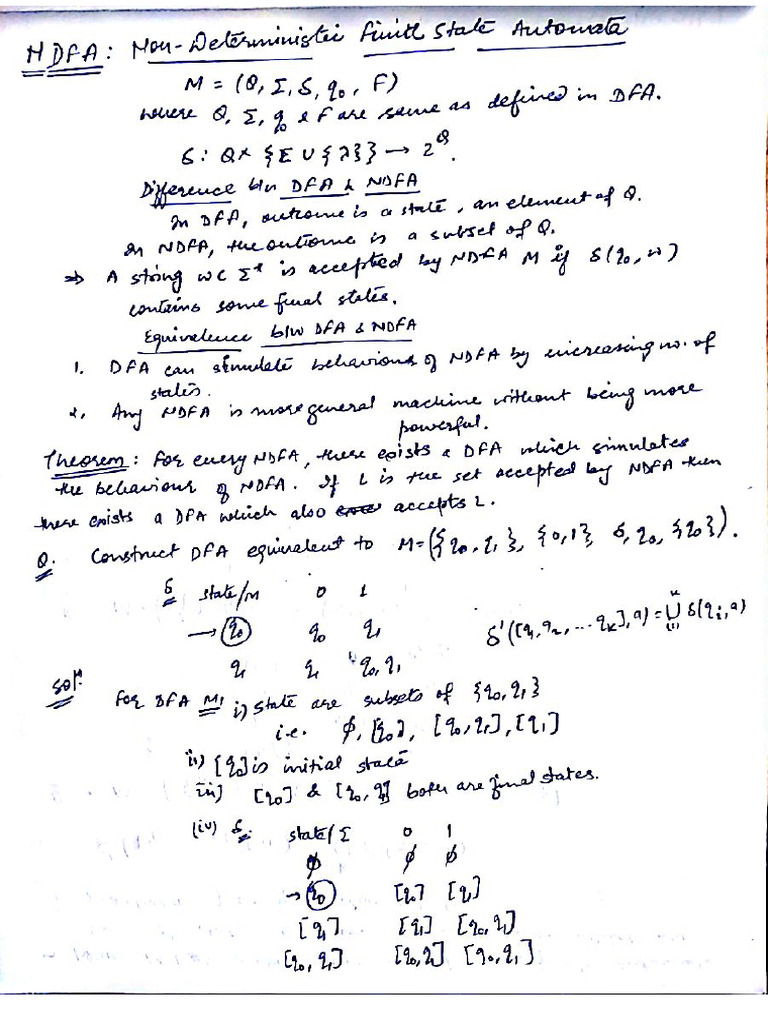 NDFA : Non-Deterministic Finite State Automata
M = (Q, Σ, δ, q₀, F)
where Q, Σ, q₀ & F are same as defined in DFA.
δ : Q × {Σ ∪ {λ}} → 2^Q.
Difference b/w DFA & NDFA
In DFA, outcome is a state, an element of Q.
In NDFA, the outcome is a subset of Q.
⇒ A string w ∈ Σ* is accepted by NDFA M if δ(q₀, w)
contains some final states.
Equivalence b/w DFA & NDFA
1. DFA can simulate behaviour of NDFA by increasing no. of
states.
2. Any NDFA is more general machine without being more
powerful.
Theorem : For every NDFA, there exists a DFA which simulates
the behaviour of NDFA. If L is the set accepted by NDFA then
there exists a DFA which also accepts L.
Q. Construct DFA equivalent to M = ({q₀, q₁}, {0,1}, δ, q₀, {q₀}).
δ state/Σ 0 1
→ q₀ q₀ q₁
δ'([q₁, q₂, ... qₖ], a) = ⋃ᵢ₌₁ᵏ δ(qᵢ, a)
q₁ q₁ q₀, q₁
Solⁿ. For DFA M₁ i) State are subsets of {q₀, q₁}
i.e. ϕ, [q₀], [q₀, q₁], [q₁]
ii) [q₀] is initial state
iii) [q₀] & [q₀, q₁] both are final states.
(iv) δ. state/Σ 0 1
ϕ ϕ ϕ
→ q₀ [q₀] [q₁]
[q₁] [q₁] [q₀, q₁]
[q₀, q₁] [q₀, q₁] [q₀, q₁]